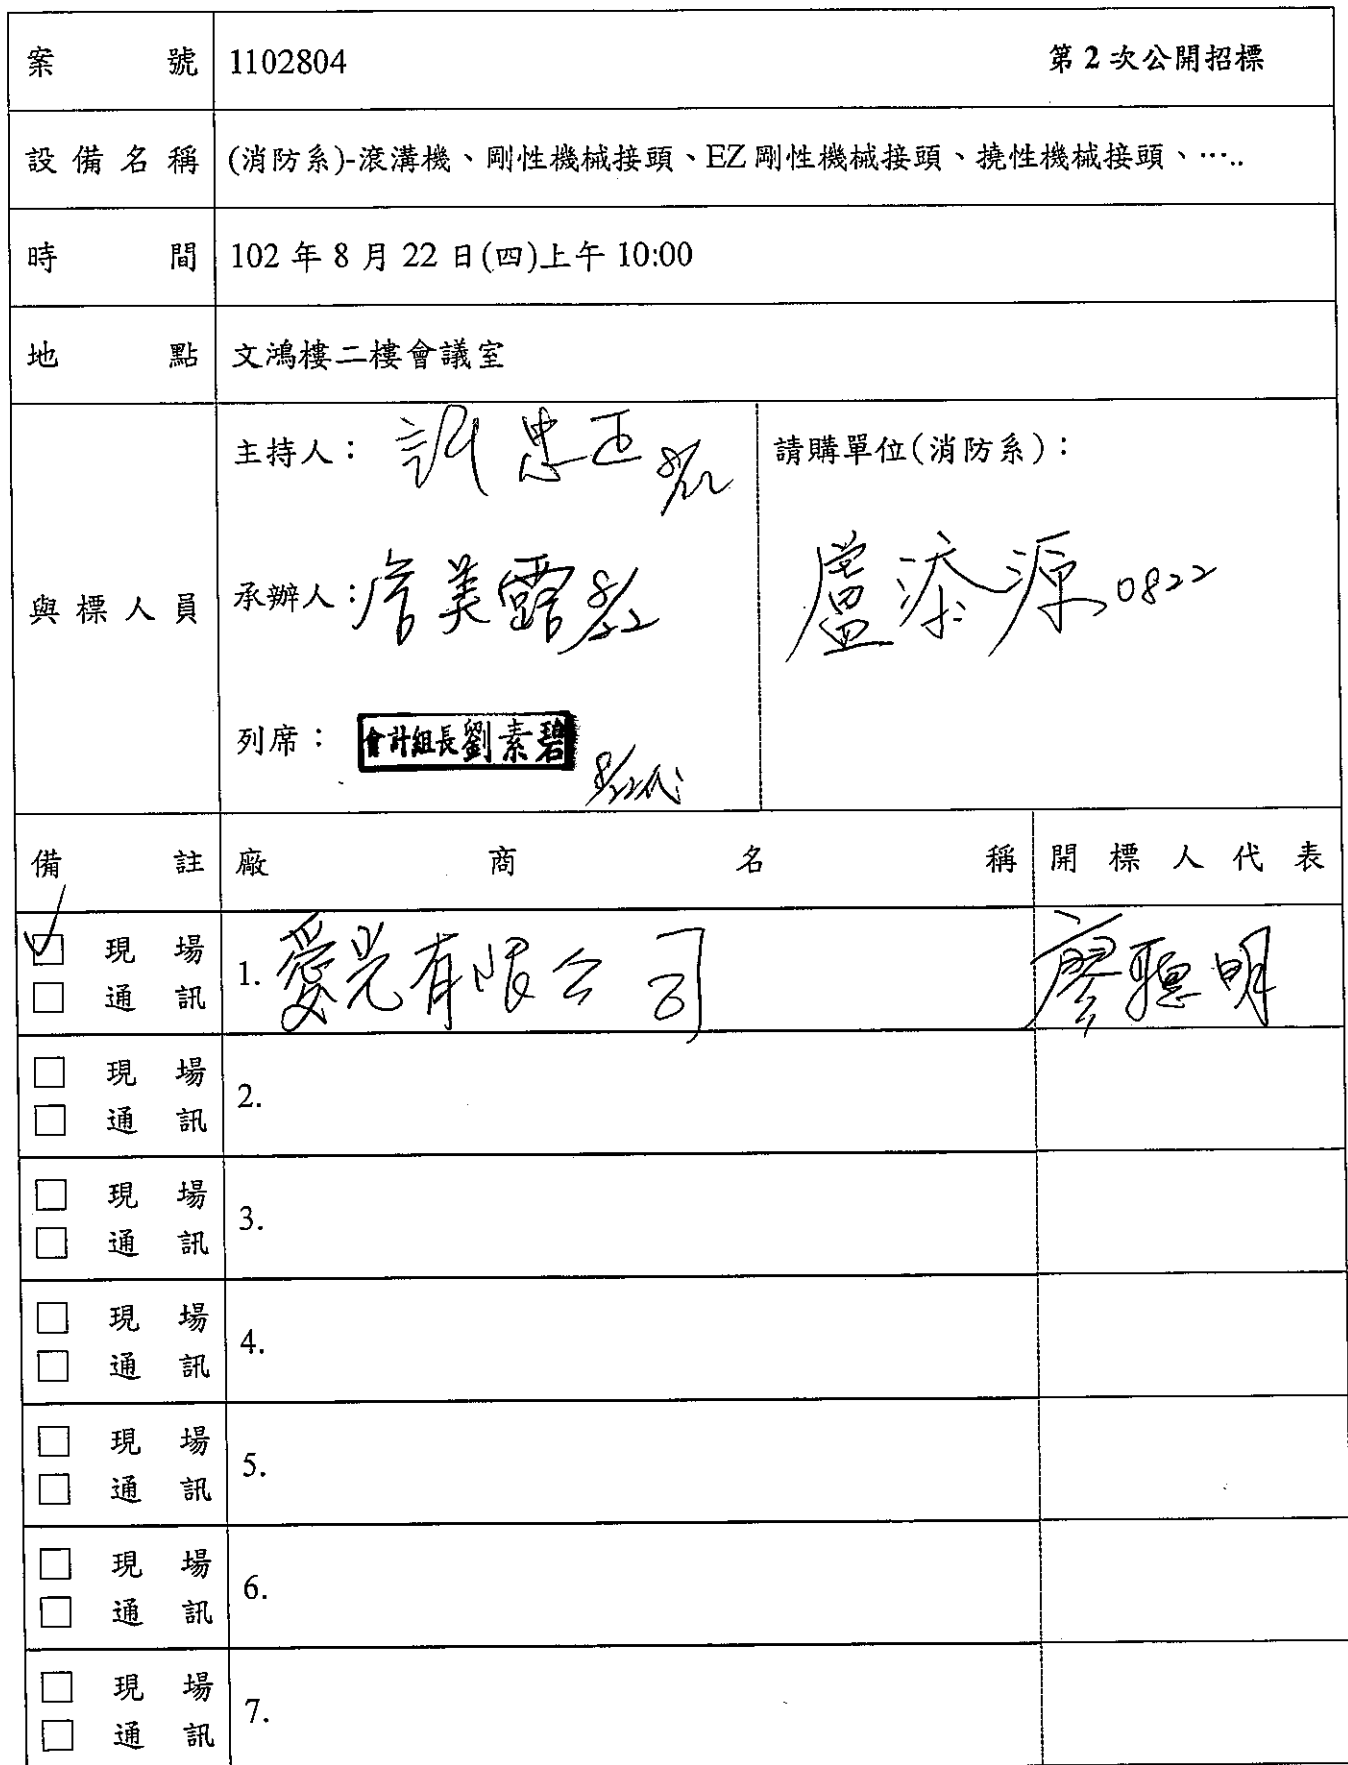 案號 1102804 第2次公開招標
設備名稱 (消防系)-滾溝機、剛性機械接頭、EZ剛性機械接頭、撓性機械接頭、…..
時間 102年8月22日(四)上午10:00
地點 文鴻樓二樓會議室
與標人員
主持人： 忠正 8/22
承辦人：詹美露 8/22
列席： 會計組長劉素碧 8/22代
請購單位(消防系)：
盧添源 0822
備註 廠商名稱 開標人代表
☑現場 1. 愛光有限公司 廖聰明
□通訊
□現場 2.
□通訊
□現場 3.
□通訊
□現場 4.
□通訊
□現場 5.
□通訊
□現場 6.
□通訊
□現場 7.
□通訊